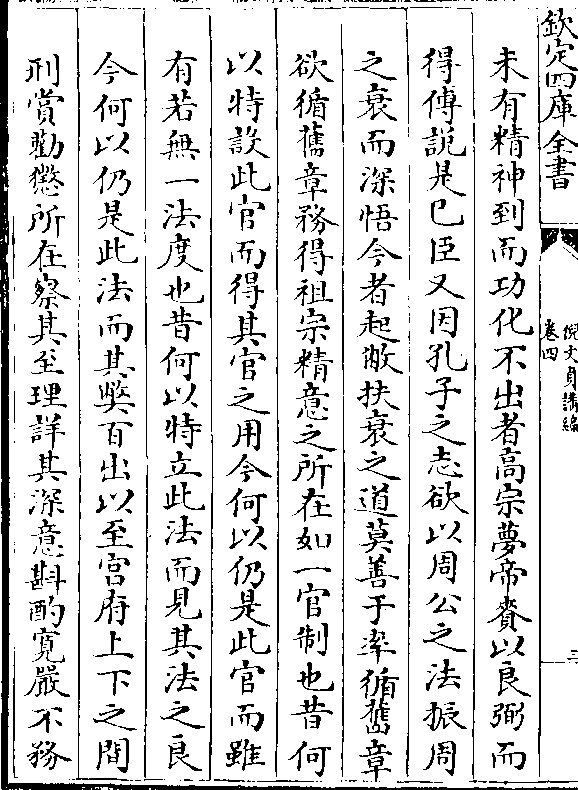 欽定四庫全書
倪文貞講編
卷四
三
未有精神到而功化不出者高宗夢帝賚以良弼而
得傅説是已臣又因孔子之志欲以周公之法振周
之衰而深悟今者起敝扶衰之道莫善于率循舊章
欲循舊章務得祖宗精意之所在如一官制也昔何
以特設此官而得其官之用今何以仍是此官而雖
有若無一法度也昔何以特立此法而見其法之良
今何以仍是此法而其弊百出以至宫府上下之間
刑賞勸懲所在察其至理詳其深意斟酌寛嚴不務